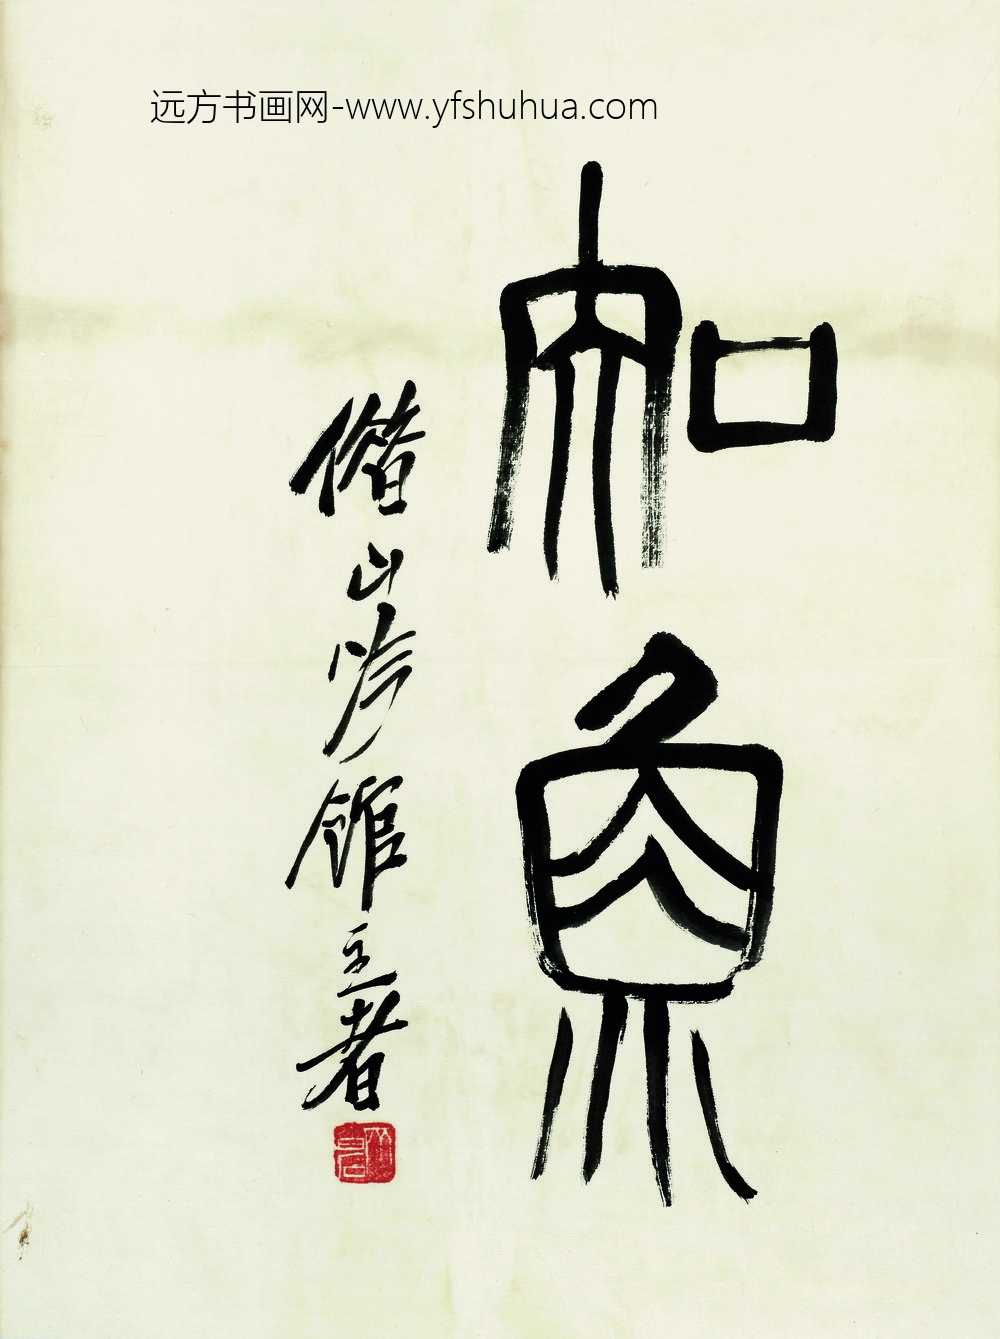 远方书画网-www.yfshuhua.com
知魚
借山吟館主者